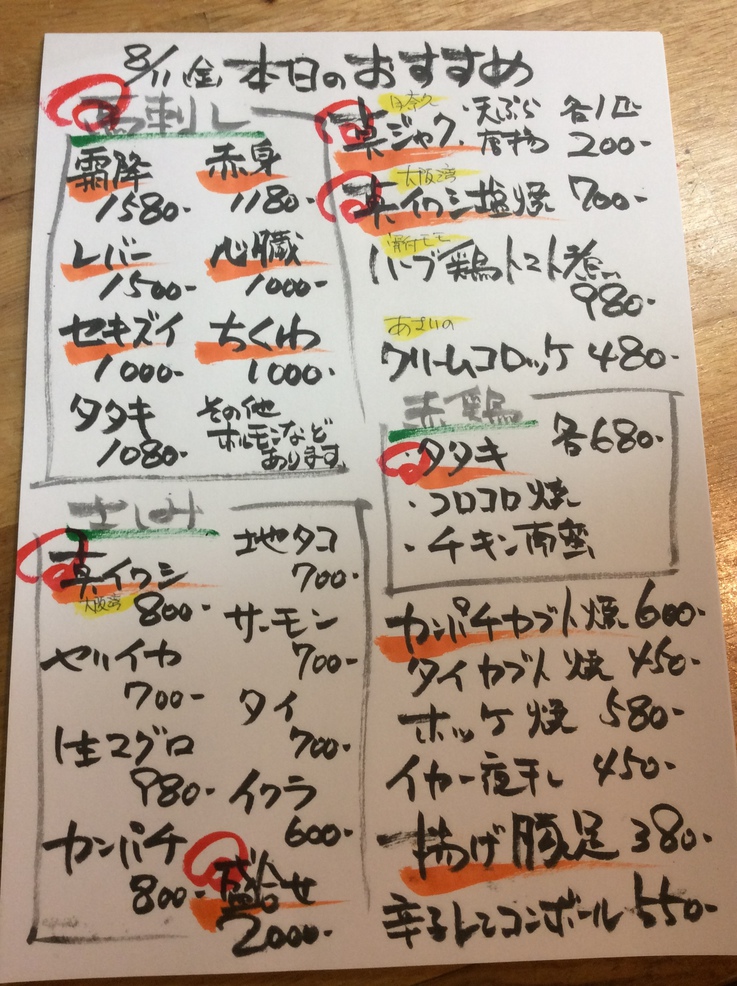 8/11(金)本日のおすすめ
馬刺し
霜降 赤身
1580- 1180-
レバー 心臓
1500- 1000-
セキズイ ちくわ
1000- 1000-
タタキ その他
1080- ホルモンなど
あります。
さしみ
真イワシ
大阪湾 800-
地タコ
700-
サーモン
700-
ヤリイカ
700-
タイ
700-
生マグロ
980-
イクラ
600-
カンパチ
800-
盛合せ
2000-
日奈久
真ジャク ・天ぷら 各1匹
唐揚 200-
大阪湾
真イワシ塩焼 700-
骨付モモ
ハーブ鶏トマト煮
980-
あさりの
クリームコロッケ 480-
赤鶏
各680-
・タタキ
・コロコロ焼
・チキン南蛮
カンパチカブト焼 600-
タイカブト焼 450-
ホッケ焼 580-
イカ一夜干し 450-
揚げ豚足 380-
辛子レンコンボール 550-